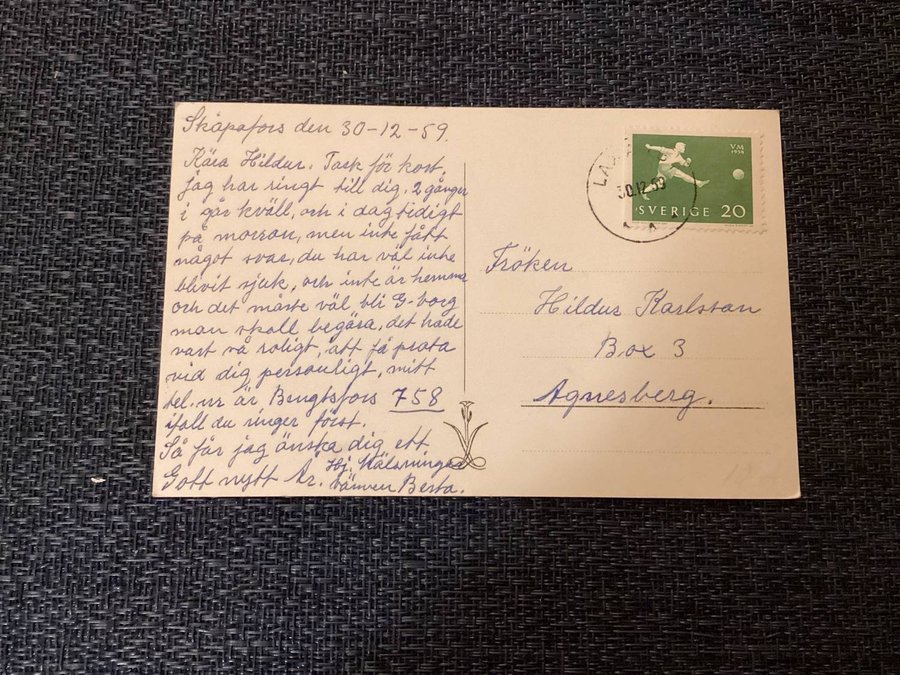 Skåpafors den 30-12-59.
Kära Hildur. Tack för kort,
jag har ringt till dig, 2 gånger
i går kväll, och i dag tidigt
på morron, men inte fått
något svar, du har väl inte
blivit sjuk, och inte är hemma
och det måste väl bli G-borg
man skall begära, det hade
vart så roligt, att få prata
vid dig personligt, mitt
tel. nr är Bengtsfors 758
ifall du ringer först.
Så får jag önska dig ett
Gott nytt År. Hj. Hälsningar
vännen Berta.
VM
1958
SVERIGE 20
30.12.59
Fröken
Hildur Karlsson
Box 3
Agnesberg.